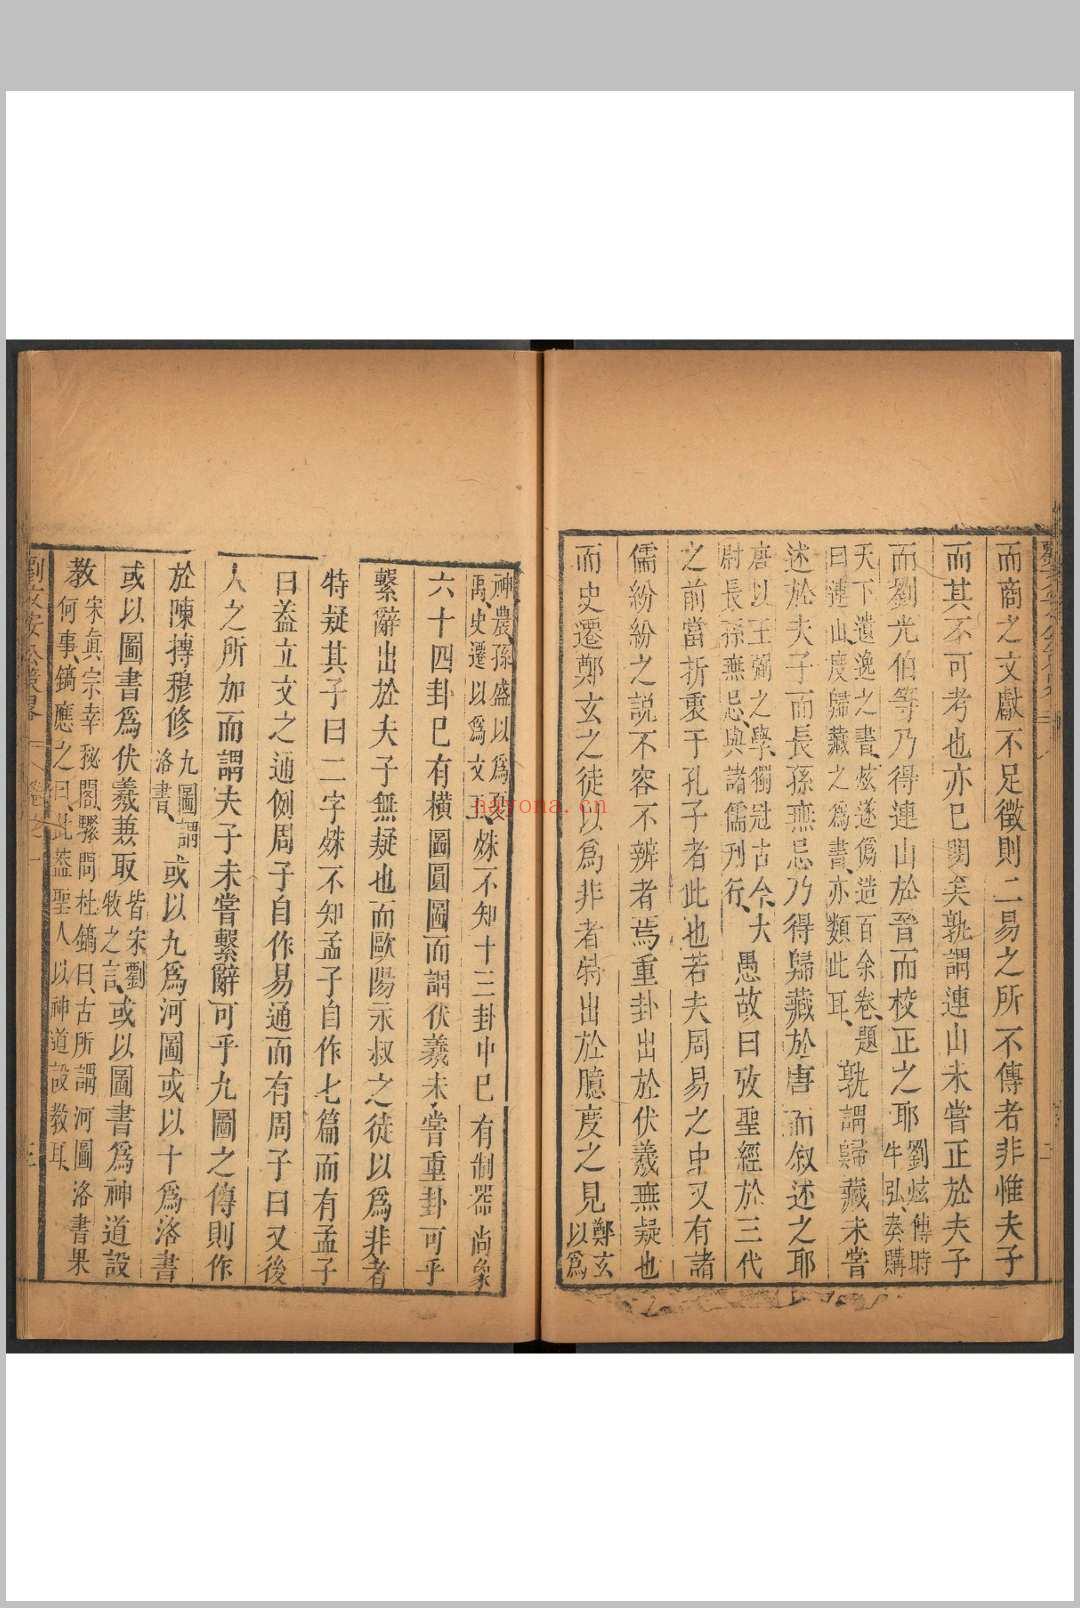 而商之文獻不足徵則二易之所不傳者非惟夫子
而其不可考也亦已閡矣孰謂連山未嘗正於夫子
而劉光伯等乃得連山於晉而校正之耶劉炫傳時牛弘奏購
天下遺逸之書炫遂僞造百余卷題曰連山度歸藏之爲書亦類此耳孰謂歸藏未嘗
述於夫子而長孫無忌乃得歸藏於唐而叙述之耶
唐以王弼之學獨冠古今大尉長孫無忌與諸儒刊行愚故曰攷聖經於三代
之前當折衷于孔子者此也若夫周易之中又有諸
儒紛紛之說不容不辨者焉重卦出於伏羲無疑也
而史遷鄭玄之徒以爲非者特出於臆度之見鄭玄以爲
神農孫盛以爲夏禹史遷以爲文王殊不知十三卦中已有制器尚象
六十四卦已有橫圖圓圖而謂伏羲未嘗重卦可乎
繫辭出於夫子無疑也而歐陽永叔之徒以爲非者
特疑其子曰二字殊不知孟子自作七篇而有孟子
曰蓋立文之通例周子自作易通而有周子曰又後
人之所加而謂夫子未嘗繫辭可乎九圖之傳則作
於陳摶穆修九圖謂洛書或以九爲河圖或以十爲洛書
或以圖書爲伏羲兼取皆宋劉牧之言或以圖書爲神道設
教宋真宗幸秘閣驟問杜鎬曰古所謂河圖洛書果何事鎬應之曰此蓋聖人以神道設教耳
卷之一
三
nayona.cn